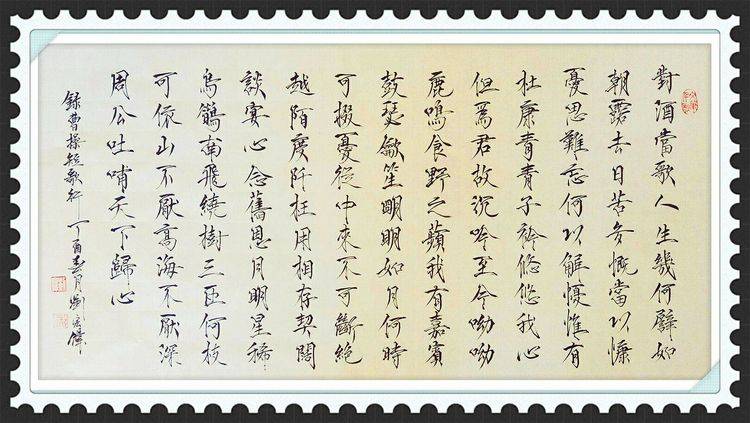 對酒當歌人生幾何譬如
朝露去日苦多慨當以慷
憂思難忘何以解憂惟有
杜康青青子衿悠悠我心
但為君故沉吟至今呦呦
鹿鳴食野之蘋我有嘉賓
鼓瑟笙明明如月何時
可掇憂從中來不可斷絕
越陌度阡枉用相存契闊
談宴心念舊恩月明星稀
烏鵲南飛繞樹三匝何枝
可依山不厭高海不厭深
周公吐哺天下歸心
錄曹操短歌行 丁酉春月劉